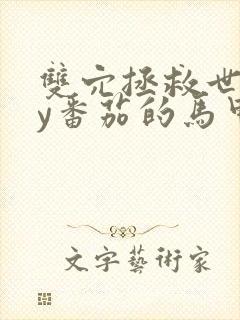 雙穴拯救世
y番茄的馬甲
文字藝術家